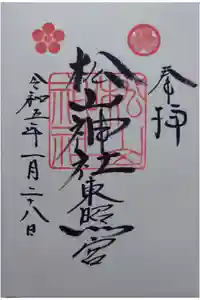 奉拝
松山神社東照宮
令和五年一月二十八日